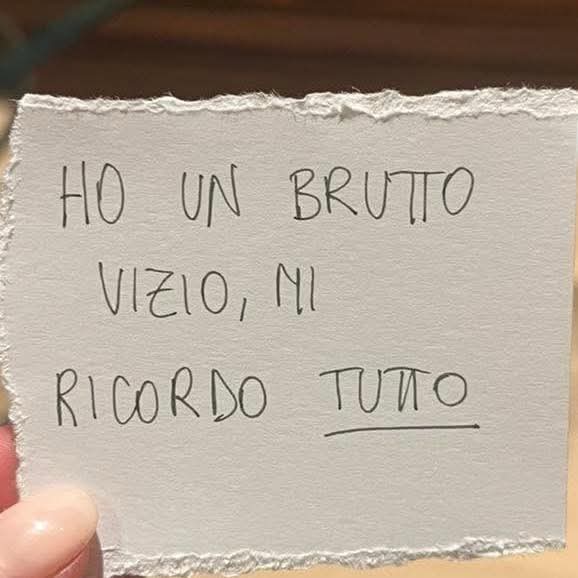 HO UN BRUTTO
VIZIO, MI
RICORDO TUTTO